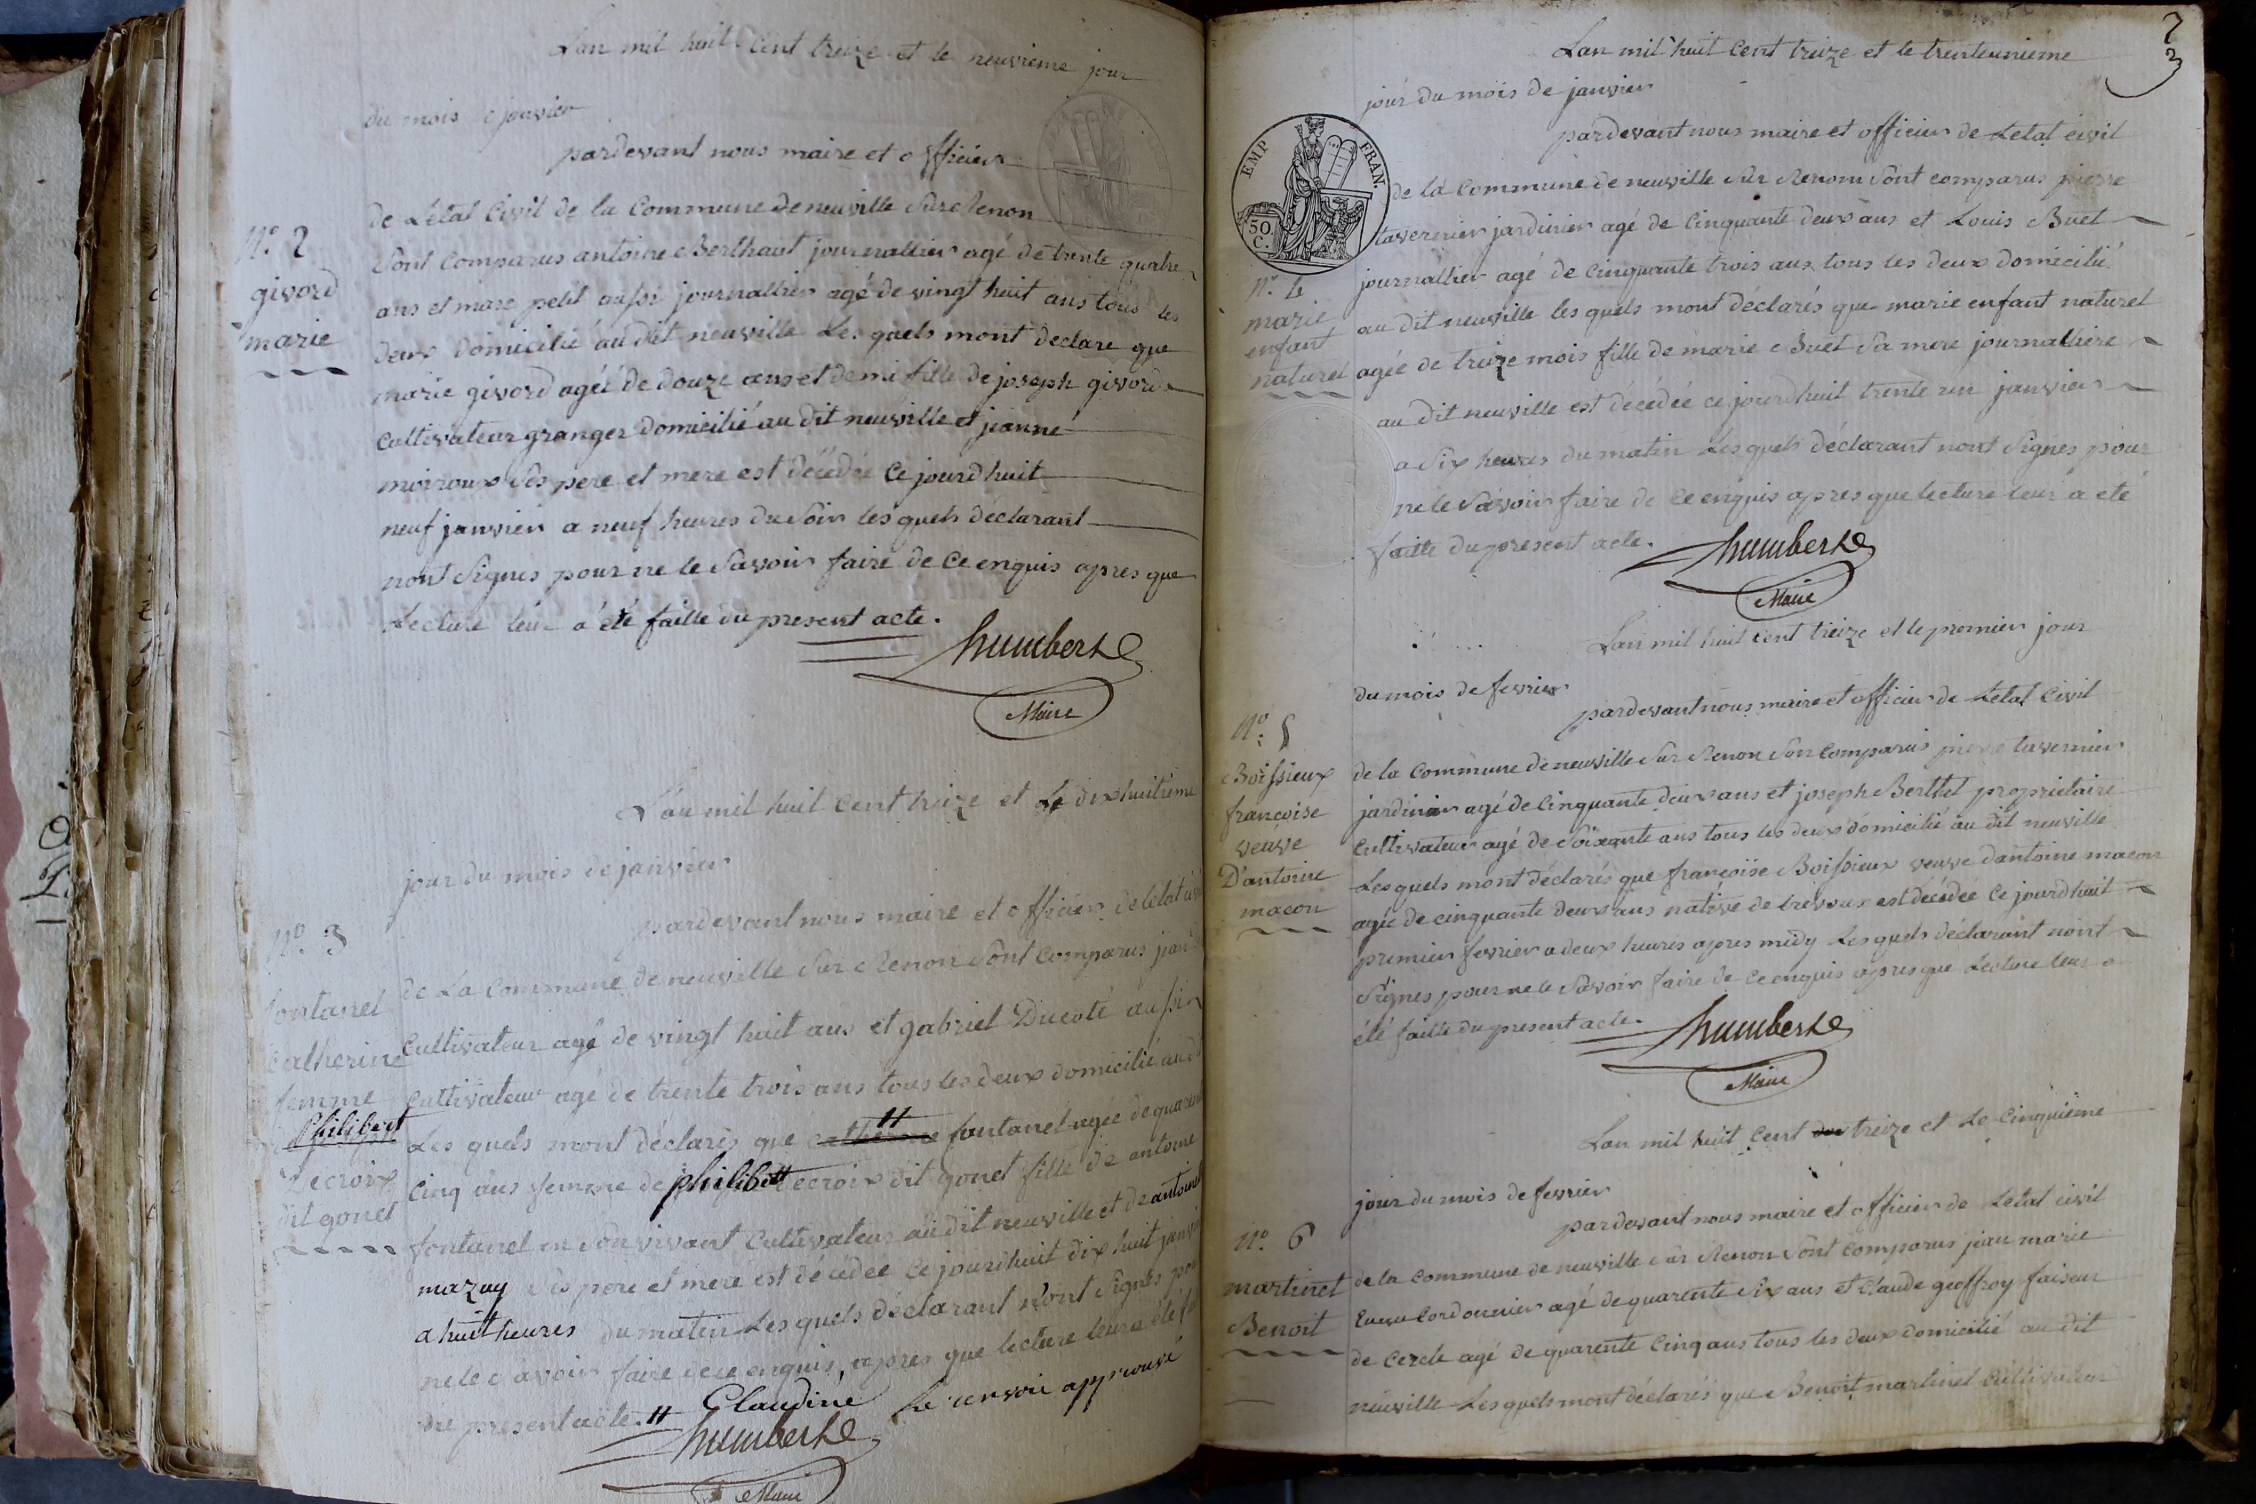 Lan mil huit cent treize et le neuvieme jour
du mois de janvier
pardevant nous maire et officier
de Létat Civil de la Commune de neuville Sur Renon
N.° 2
givord
marie
Sont Comparus antoine Berthaut journallier agé de trente quatre
ans et marc petit aussi journallier agé de vingt huit ans tous les
deux domicilié au dit neuville Les quels mont declare que
marie givord agéé de douze ans et demi fille de joseph givord
Cultivateur granger domicilié au dit neuville et jeanne
moiroux Ses pere et mere est décédée Ce jourdhuit
neuf janvier a neuf heures du Soir les quels déclarant
nont Signes pour ne le Savoir faire de Ce enquis apres que
Lecture leur a été faitte du present acte.
humbert
Maire
Lan mil huit Cent treize et Le dixhuitieme
jour du mois de janvier
pardevant nous maire et officier de létat
N.° 3
fontanel
Catherine
femme
Philibert
Decroix
dit gonet
de La Commune de neuville Sur Renon Sont Comparus
Cultivateur agé de vingt huit ans et gabriel Ducoté aussi
Cultivateur agé de trente trois ans tous les deux domicilié au
Les quels mont déclarés que catherine fontanel agée de
Cinq ans femme de philibert Decroix dit gonet fille de antoine
fontanel en Son vivant Cultivateur au dit neuville et de
mazuy Ses pere et mere est décédée Ce jourdhuit dix huit
a huit heures du matin Les quels déclarant n'ont Signés
ne le Savoir faire de ce enquis apres que lecture leur a été
du present acte. H Claudine Le renvoie approuvé
humbert
Maire
3
Lan mil huit Cent treize et le trenteunieme
jour du mois de janvier
EMP FRAN.
50. C.
pardevant nous maire et officier de Letat civil
de la Commune de neuville Sur Renom Sont comparus pierre
tavernier jardinier agé de Cinquante deux ans et Louis Buet
N.° 4
marie
enfant
naturel
journallier agé de Cinquante trois ans tous les deux domicilié
au dit neuville les quels mont déclarés que marie enfant naturel
agée de treize mois fille de marie Buet Sa mere journalliere
au dit neuville est décédée ce jourdhuit trente un janvier
a Six heures du matin Les quels déclarant nont Signes pour
ne le Savoir faire de Ce enquis apres que lecture leur a eté
faitte du present acte.
humbert
Maire
Lan mil huit Cent treize et le premier jour
du mois de fevrier
pardevant nous maire et officier de Letat Civil
N.° 5
Boissieux
francoise
veuve
D'antoine
macon
de la Commune de neuville Sur Renon Son Comparus pierre tavernier
jardinier agé de Cinquante deux ans et joseph Berthet proprietaire
Cultivateur agé de Soixante ans tous les deux domicilié au dit neuville
Les quels mont déclarés que françoise Boissieux veuve dantoine macon
agée de cinquante deux ans native de trevoux est décédée Ce jourdhuit
premier fevrier a deux heures apres midy Les quels déclarant nont
Signes pour ne le Savoir faire de Ce enquis apres que Lecture leur a
été faitte du present acte.
humbert
Maire
Lan mil huit Cent treize et Le Cinquieme
jour du mois de fevrier
pardevant nous maire et officier de Letat civil
N.° 6
martinet
Benoit
de la Commune de neuville Sur Renon Sont Comparus jean marie
Cordonnier agé de quarente Six ans et Claude geoffroy faiseur
de Cercle agé de quarente Cinq ans tous les deux domicilié au dit
neuville Les quels mont déclarés que Benoit martinet Cultivateur